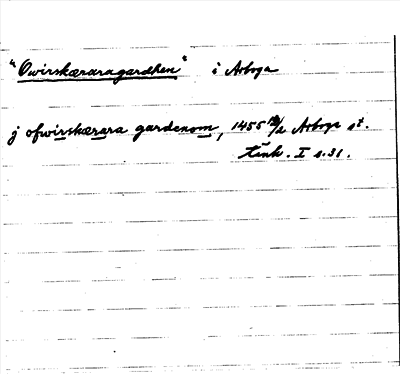 "Owirskæraragardhen" i Arboga
j ofwirskærara gardenom, 1455 10/2 Arboga st.
tänk. I s. 31.